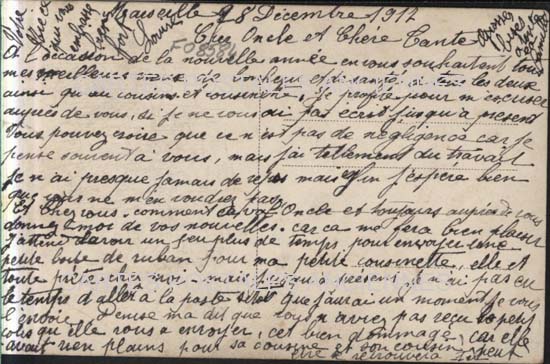 Marseille 28 Décembre 1912
Cher Oncle et Chère Tante
A l'occasion de la nouvelle année en vous souhaitant tous
mes meilleurs vœux de bonheur et de santé a tous les deux
ainsi qu'au cousins et cousinette, Je profite pour m'excuser
auprès de vous, si je ne vous ai pas écrit jusqu'à présent
Vous pouvez croire que ce n'est pas de négligence car je
pense souvent à vous, mais j'ai tellement du travail
Je n'ai presque jamais de repos mais enfin j'espère bien
que vous ne m'en voudrez pas.
Et chez vous comment ça va Oncle et toujours auprès de vous
donnez moi de vos nouvelles. car ca me fera bien plaisir
J'attend d'avoir un peu plus de temps, pour envoyer une
petite boite de ruban pour ma petite cousinette, elle et
toute prête chez moi mais jusqu'a présent, je n'ai pas eu
le temps d'aller a la poste sitôt que j'aurai un moment je vous
l'envoie. Denise ma dit que vous n'avez pas reçu le petit
colis qu'elle vous a envoyer, cet bien dommage, car elle
avait rien plains pour sa cousine et son cousin
elle et retrouvera
Votre
nièce
qui vous
embrasse
bien
fort
Louise
F08584